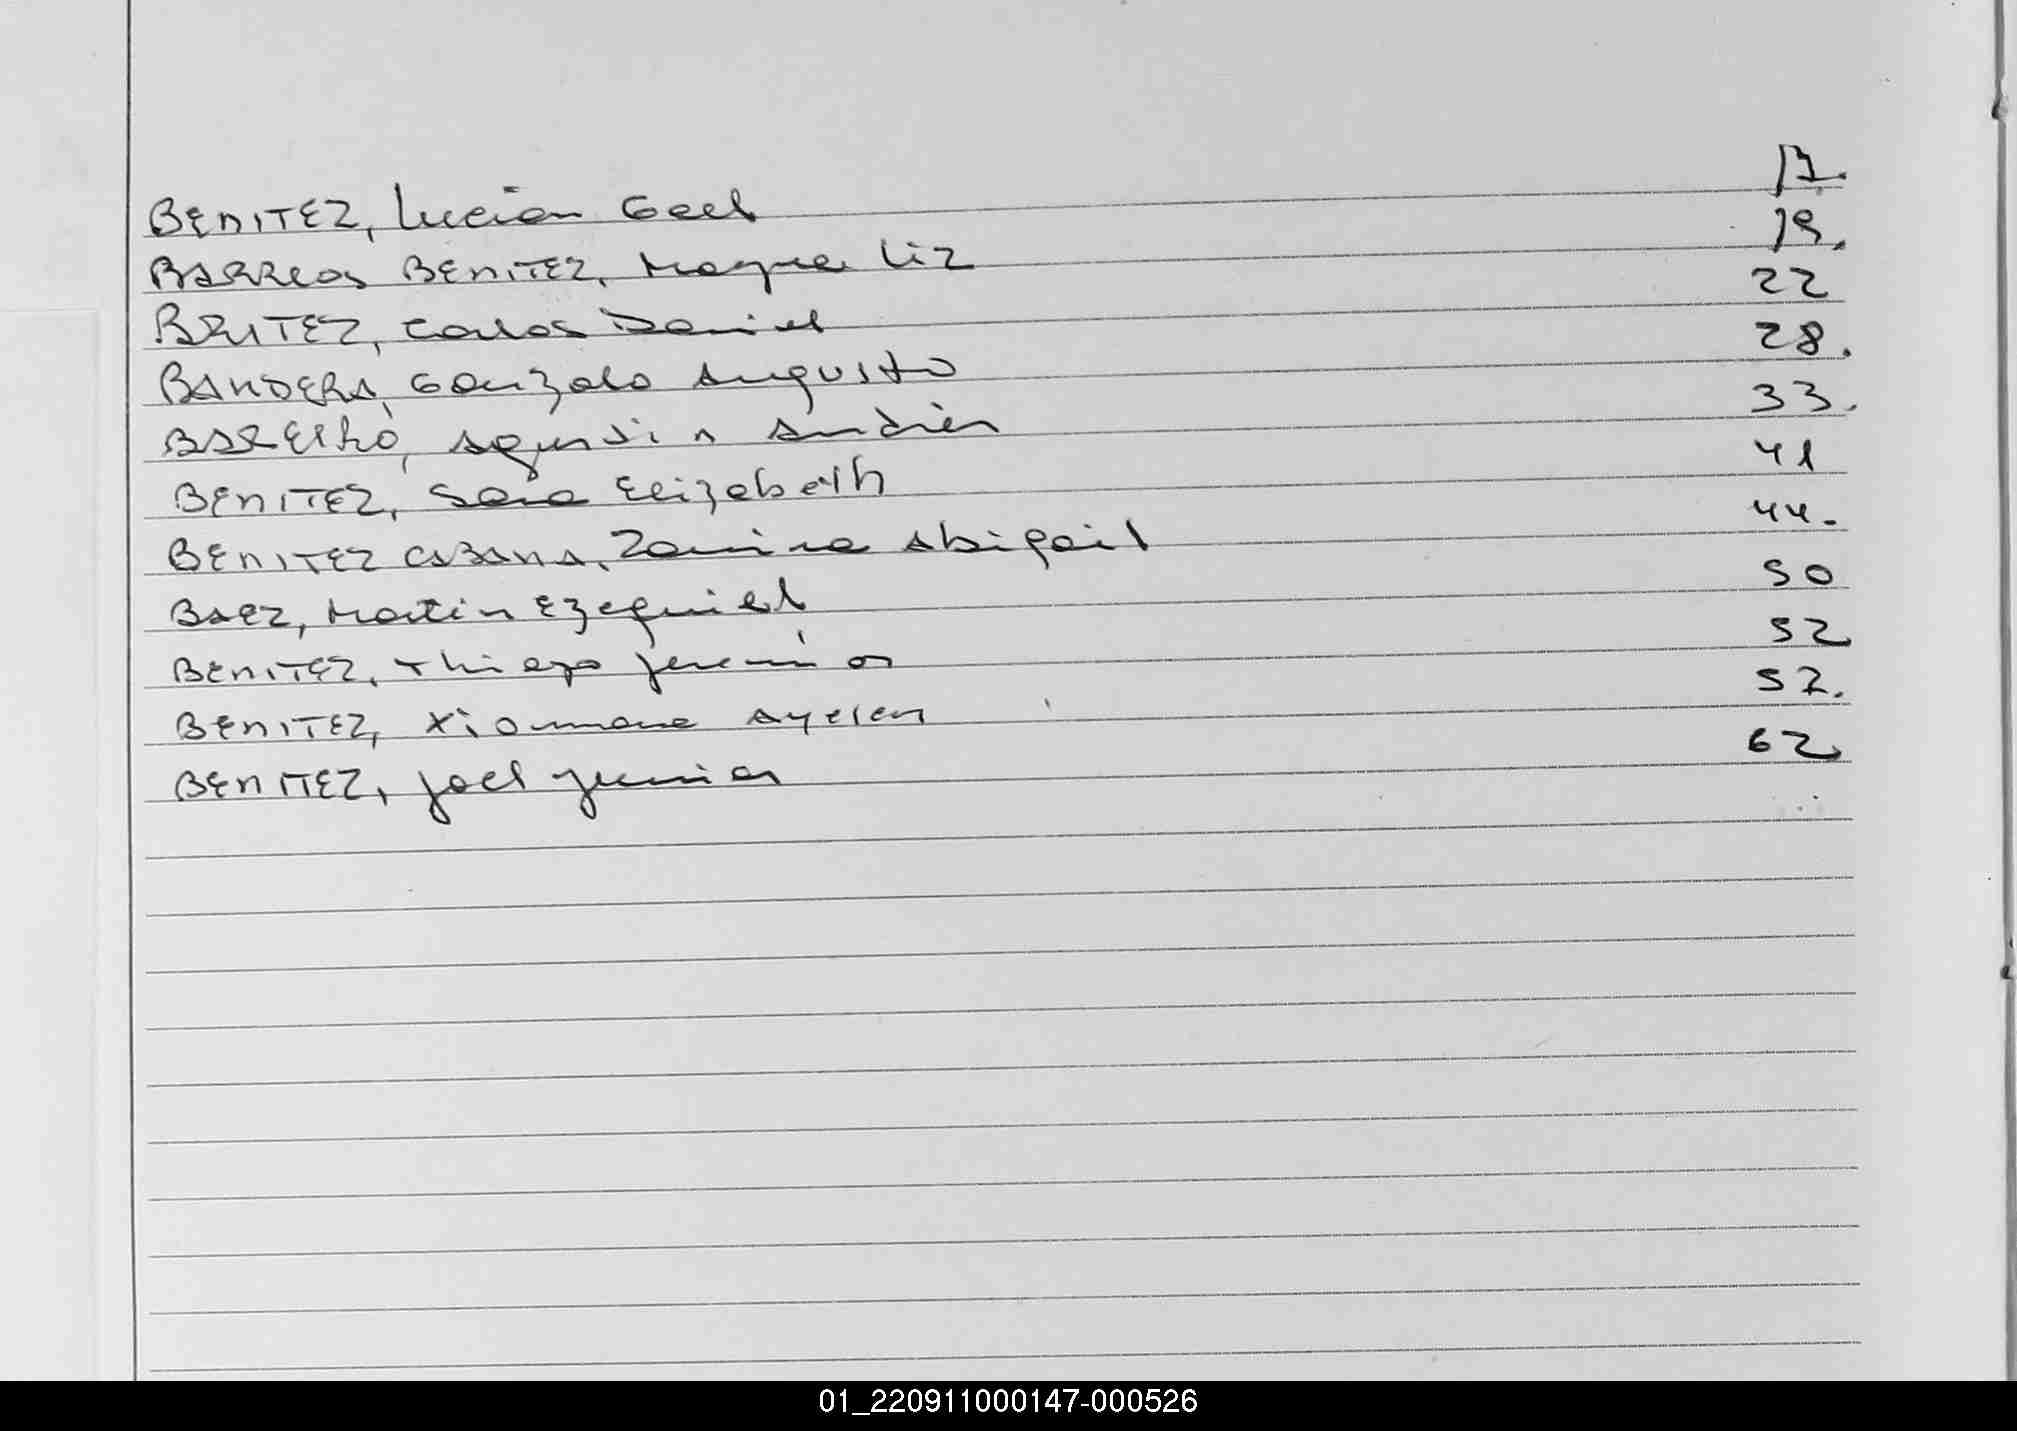 BENITEZ, Lucian Gael 17.
BARRIOS BENITEZ, Liz 19.
BRITEZ, Carlos Daniel 22
BANDERA, Gonzalo Augusto 28.
BAREIRO, Agustin Andrés 33.
BENITEZ, Sara Elizabeth 41
BENITEZ CABANA, Zamira Abigail 44.
BAEZ, Martin Ezequiel 50
BENITEZ, Thiago Jeremías 52
BENITEZ, Xiomara Ayelen 52.
BENITEZ, Joel Junior 62
01_220911000147-000526